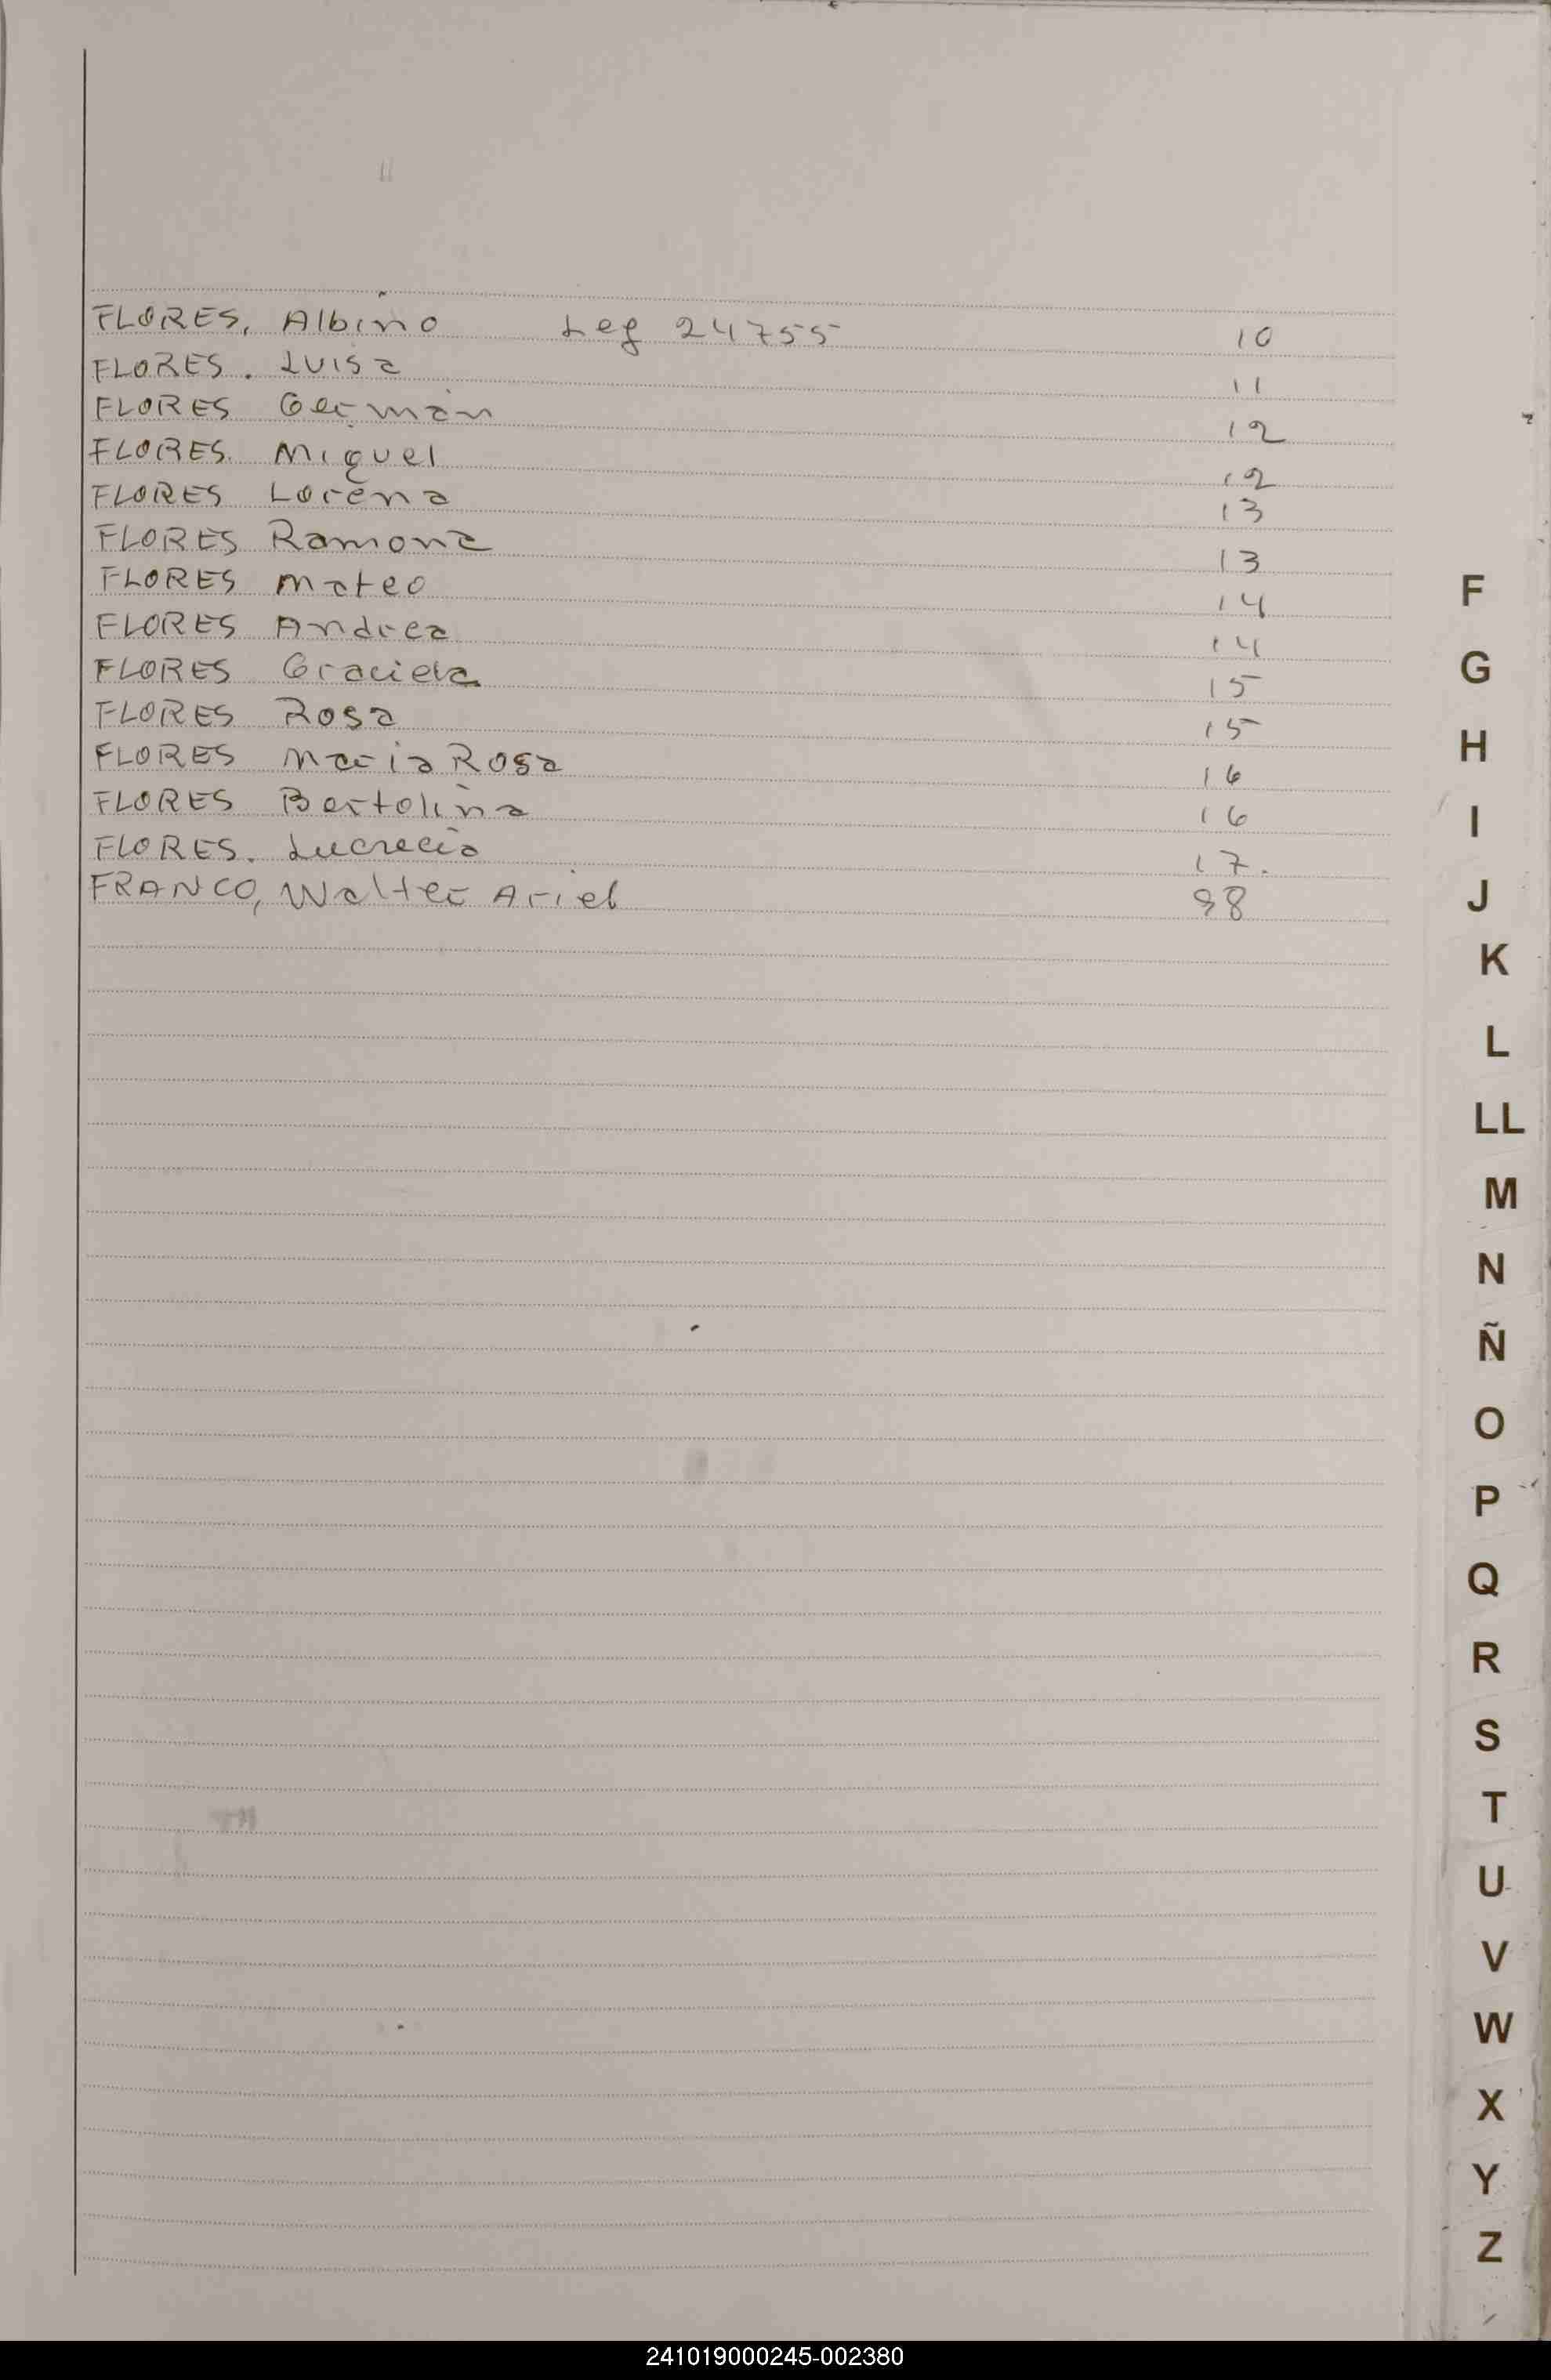 FLORES, Albino Leg 24755 10
FLORES. Luisa 11
FLORES Germán 12
FLORES. Miguel 12
FLORES Lorena 13
FLORES Ramona 13
FLORES Mateo 14
FLORES Andrea 14
FLORES Graciela 15
FLORES Rosa 15
FLORES Maria Rosa 16
FLORES Bertolina 16
FLORES. Lucrecia 17.
FRANCO, Walter Ariel 98
F
G
H
I
J
K
L
LL
M
N
Ñ
O
P
Q
R
S
T
U
V
W
X
Y
Z
241019000245-002380